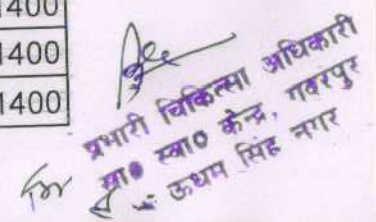 1400
1400
1400
प्रभारी चिकित्सा अधिकारी
प्रा० स्वा० केन्द्र, गदरपुर
ऊधम सिंह नगर
for